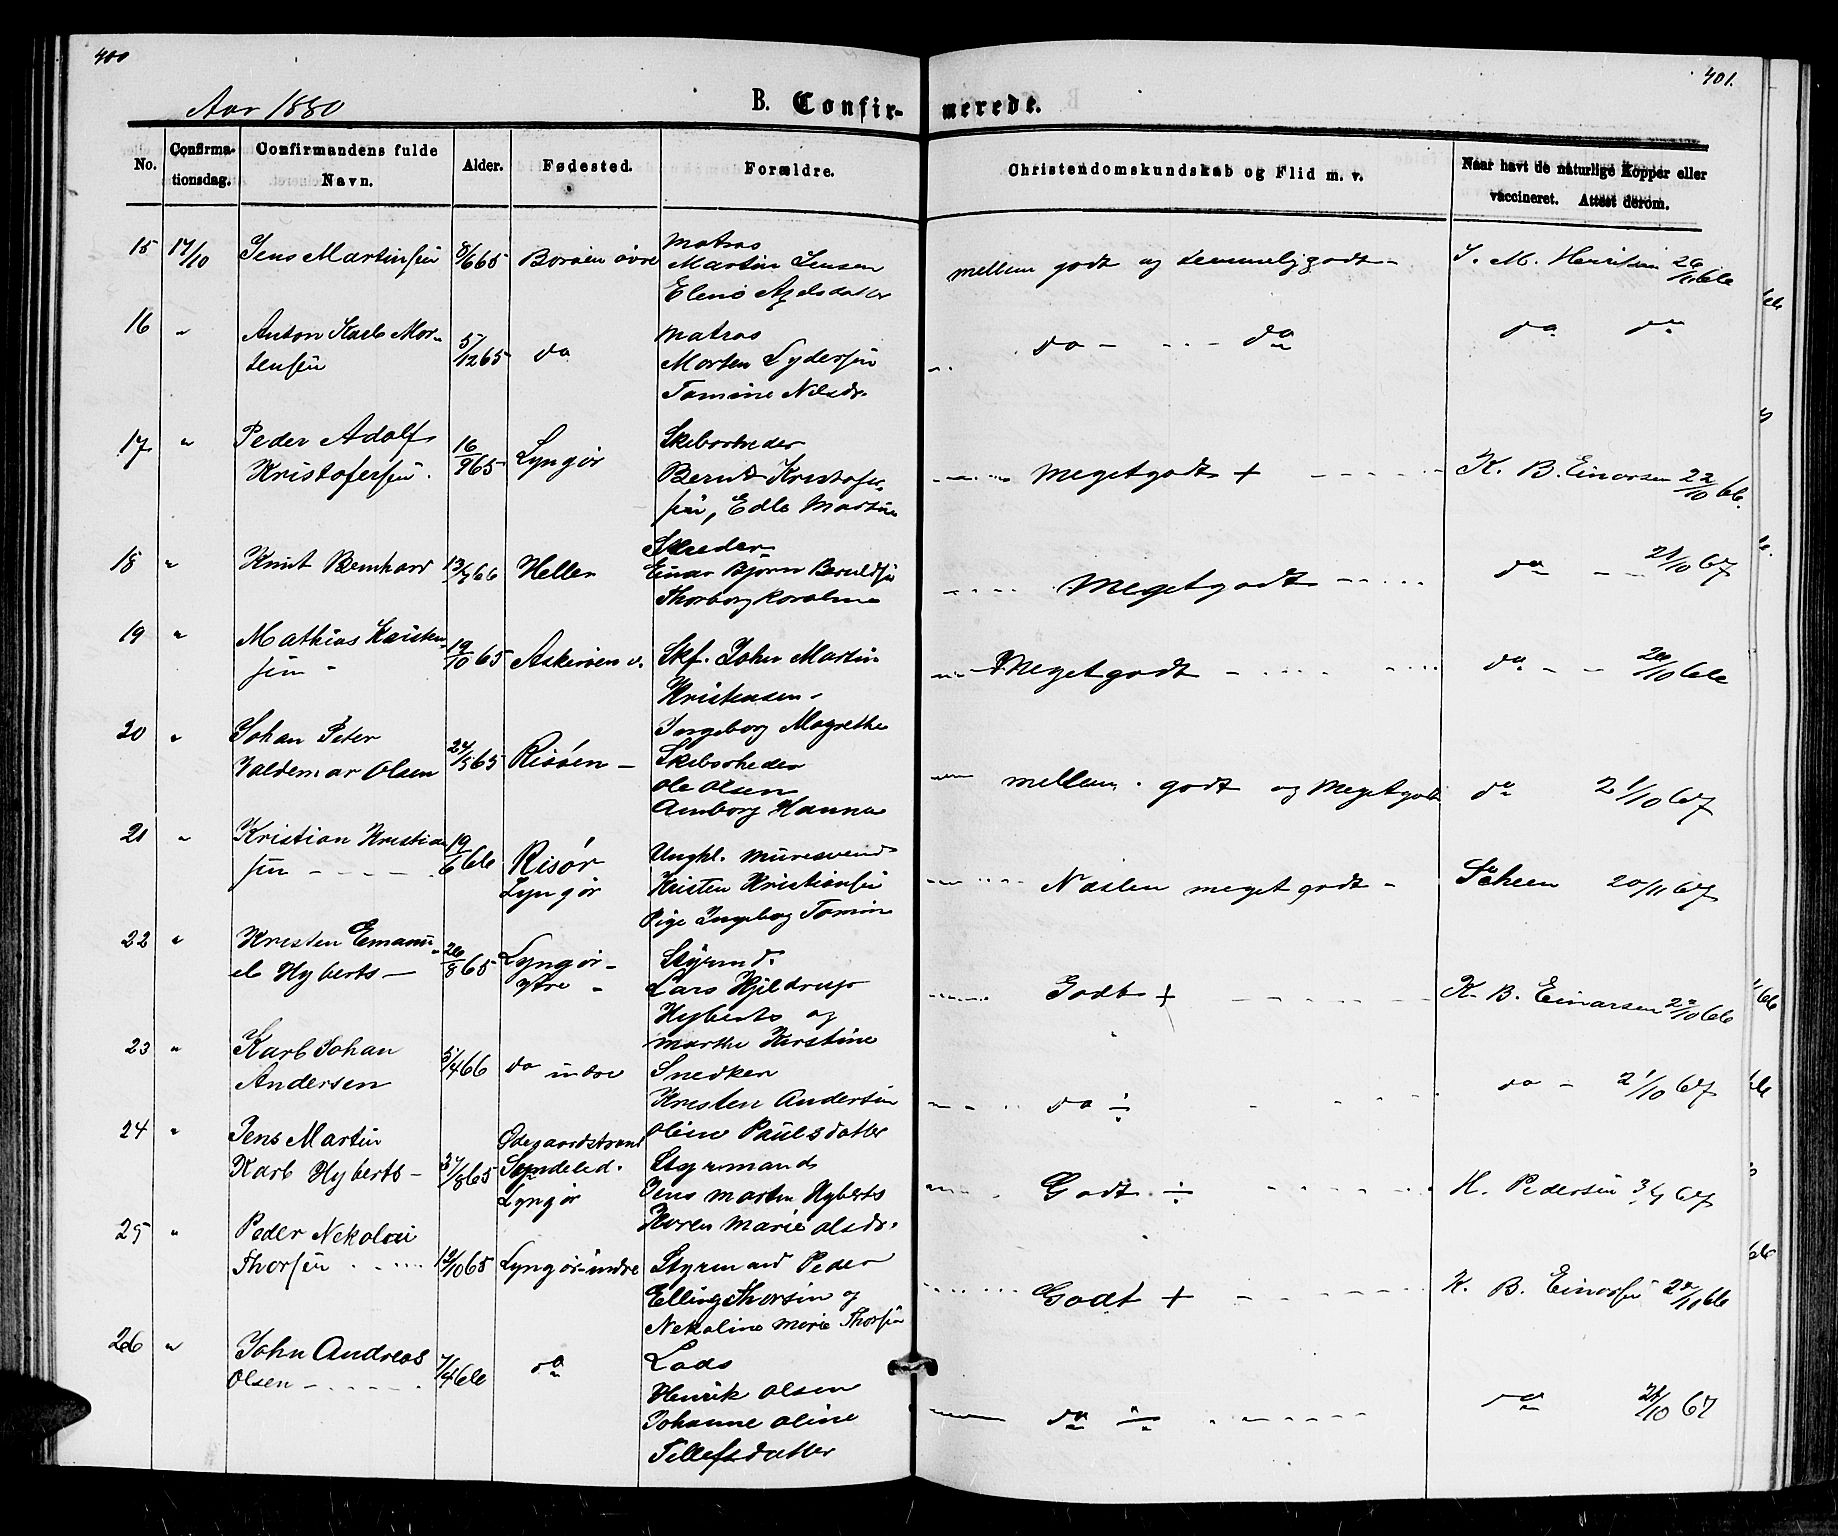 400
401.
Aar 1880
B. Confir-
merede.
No.
Confirma-
tionsdag.
Confirmandens fulde
Navn.
Alder.
Fødested.
Forældre.
Christendomskundskab og Flid m. v.
Naar havt de naturlige Kopper eller
vaccineret. Attest derom.
15 17/10 Jens Martinsen 8/6 65 Borøen øvre
Matros
Martin Jensen
mellem godt og temmeliggodt -
J. M. 26/10 66
16 " Anton Karl Mor-
tensen
5/12 65 do
Matros
Morten Lydersen
Tomine Nilsdr.
do - - - do
do do
17 " Peder Adolf
Kristofersen.
16/9 65 Lyngør
Skibsrheder
Bernt Kristofer-
sen, Edle Martine
Megetgodt +
K. B. Einarsen 22/10 66.
18 " Knut Bernhard 13/7 66 Hellen
Skreder
Einar Bjørn Beruldsen
Thorborg Koraline
Megetgodt
do - - 21/10 67
19 " Mathias Kristen-
sen -
19/10 65 Askerøen v.
Skf. John Martin
Kristensen -
Ingeborg Magrethe
Megetgodt
do - - 20/10 66
20 " Johan Peter
Valdemar Olsen
24/5 65 Risøen -
Skibsrheder
Ole Olsen
Amborg Hanna
mellem godt og Megetgodt
do 21/10 67
21 " Kristian Kristian
sen
19/6 66 Risør
Lyngør
Ungkl. Muresvend
Kristen Kristiansen
Pige Ingeborg Tomine
Næsten meget godt -
Scheen 20/11 67
22 " Kristen Emanu-
el Hyberts -
26/8 65 Lyngør -
ytre -
Styrmd.
Lars Hjeldrup
Hyberts og
Marthe Kirstine
Godt +
K. B. Einarsen 22/10 66
23 " Karl Johan
Andersen
5/4 66 do indre
Snedker
Kristen Andersen
Oline Paulsdatter
do ÷
do - 21/10 67
24 " Jens Martin
Karl Hyberts -
31/8 65 Ødegaardstrand
Søndeled.
Lyngør
Styrmand
Jens Martin Hyberts
Karen Marie Olsdr.
Godt ÷
H. Pedersen 3/7 67
25 " Peder Nekolai
Thorsen
19/10 65 Lyngør-indre
Styrmand Peder
Elling Thorsen og
Nekoline Marie Thorsen
Godt +
K. B. Einarsen 22/10 66
26 " John Andreas
Olsen
7/4 66 do
Lods
Henrik Olsen
Johanne Oline
Tellefsdatter
do ÷
do 21/10 67